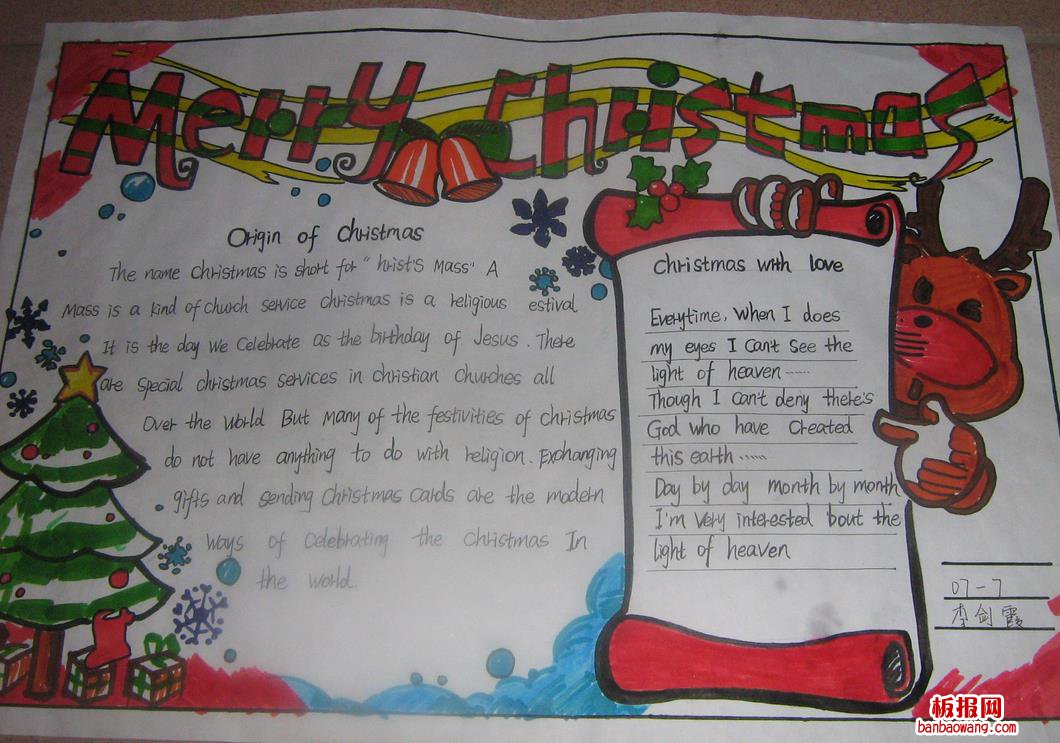 Merry Christmas
Origin of Christmas
The name christmas is short for "hrist's Mass" A
Mass is a kind of church service christmas is a religious estival
It is the day we celebrate as the birthday of Jesus. There
are special christmas services in christian churches all
Over the world But many of the festivities of christmas
do not have anything to do with religion. Exchanging
gifts and sending christmas cards are the modern
ways of celebrating the christmas In
the world.
Christmas with love
Everytime, when I does
my eyes I can't see the
light of heaven......
Though I can't deny there's
God who have created
this earth......
Day by day month by month
I'm very interested 'bout the
light of heaven
07-7
李剑霞
板报网
banbaowang.com